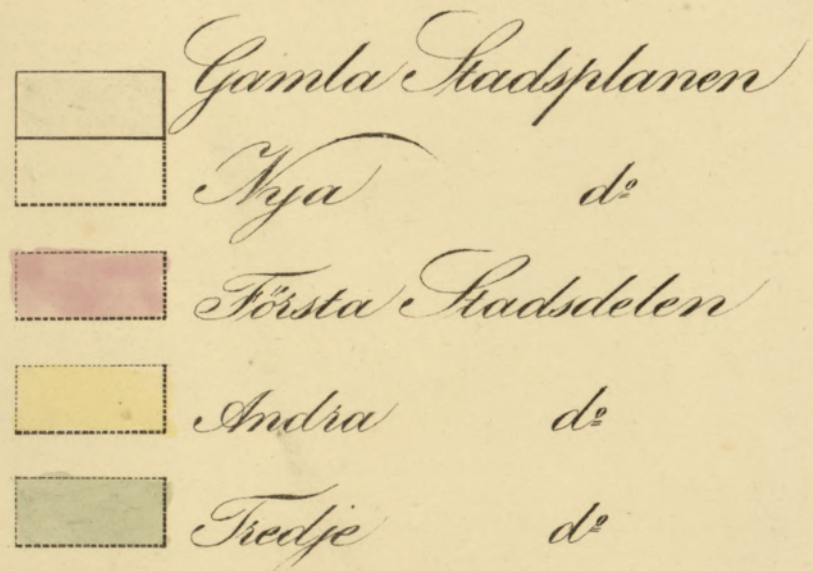 Gamla Stadsplanen
Nya dº
Första Stadsdelen
Andra dº
Tredje dº